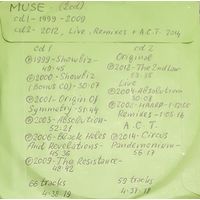 MUSE - (2cd)
cd1 - 1999 - 2009
cd2 - 2012, Live, Remixes + A.C.T. 2014
cd 1
① 1999 - Showbiz -
49:45
② 2000 - Showbiz
(Bonus CD) - 30:07
③ 2001 - Origin Of
Symmetry - 51:44
④ 2003 - Absolution -
52:21
⑤ 2006 - Black Holes
And Revelations -
45:36
⑥ 2009 - The Resistance -
48:42
66 tracks
4:38:19
cd 2
Original
① 2012 - The 2nd Law
Live
② 2004 - Absolution
30:07
③ 2008 - HAARP -
Remixes -
A.C.T.
⑥ 2014 - Circus
Pandemonium -
56:17
59 tracks
4:37:18